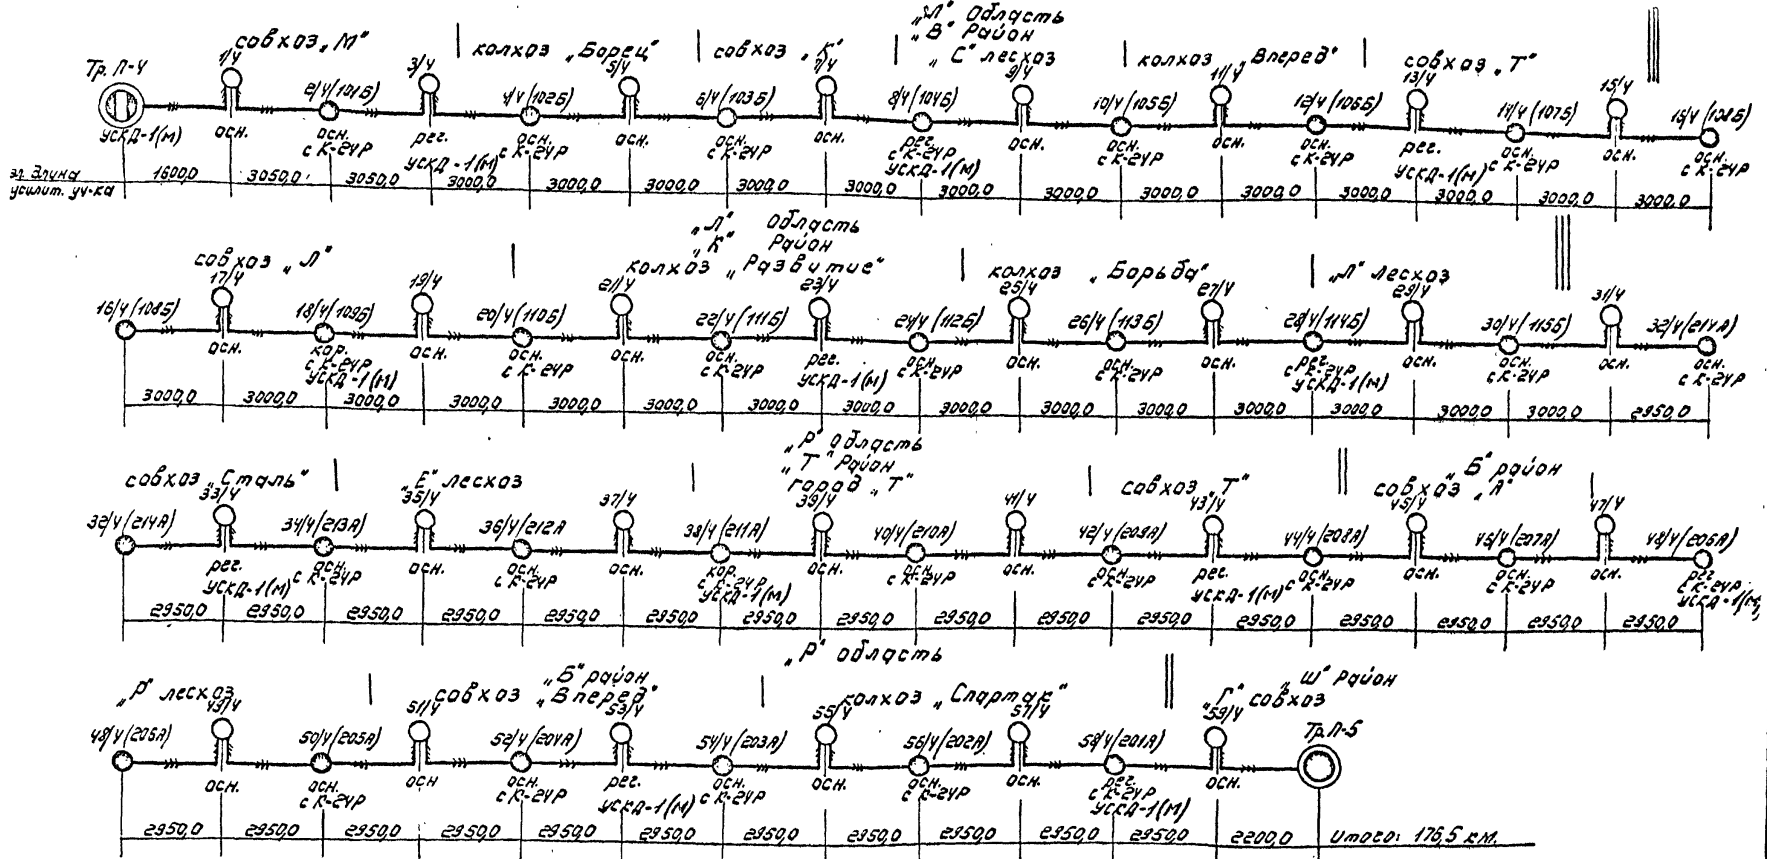 „Л" область
„В" Район
совхоз „М" колхоз „Борец" совхоз „К" „С" лесхоз колхоз „Вперед" совхоз „Т"
Тр. П-4 1/4 2/4(101Б) 3/4 4/4(102Б) 5/4 6/4(103Б) 7/4 8/4(104Б) 9/4 10/4(105Б) 11/4 12/4(106Б) 13/4 14/4(107Б) 15/4 16/4(108Б)
УСКД-1(М) осн. осн. с К-24Р рег. УСКД-1(М) осн. с К-24Р осн. осн. с К-24Р осн. рег. с К-24Р УСКД-1(М) осн. осн. с К-24Р осн. осн. с К-24Р рег. УСКД-1(М) осн. с К-24Р осн. осн. с К-24Р
эл. длина
усилит. уч-ка
1600,0 3050,0 3050,0 3000,0 3000,0 3000,0 3000,0 3000,0 3000,0 3000,0 3000,0 3000,0 3000,0 3000,0 3000,0 3000,0
„Л" область
„К" Район
совхоз „Л" колхоз „Развитие" колхоз „Борьба" „Л" лесхоз
16/4(108Б) 17/4 18/4(109Б) 19/4 20/4(110Б) 21/4 22/4(111Б) 23/4 24/4(112Б) 25/4 26/4(113Б) 27/4 28/4(114Б) 29/4 30/4(115Б) 31/4 32/4(214А)
осн. кор. с К-24Р УСКД-1(М) осн. осн. с К-24Р осн. осн. с К-24Р рег. УСКД-1(М) осн. с К-24Р осн. осн. с К-24Р осн. рег. с К-24Р УСКД-1(М) осн. осн. с К-24Р осн. осн. с К-24Р
3000,0 3000,0 3000,0 3000,0 3000,0 3000,0 3000,0 3000,0 3000,0 3000,0 3000,0 3000,0 3000,0 3000,0 3000,0 2950,0
„Р" область
„Т" Район
город „Т"
совхоз „Сталь" „Е" лесхоз совхоз „Т" „Б" район совхоз „А"
32/4(214А) 33/4 34/4(213А) 35/4 36/4(212А 37/4 38/4(211А) 39/4 40/4(210А) 41/4 42/4(209А) 43/4 44/4(208А) 45/4 46/4(207А) 47/4 48/4(206А)
рег. УСКД-1(М) осн. с К-24Р осн. осн. с К-24Р осн. кор. с К-24Р УСКД-1(М) осн. осн. с К-24Р осн. осн. с К-24Р рег. УСКД-1(М) осн. с К-24Р осн. осн. с К-24Р осн. рег. с К-24Р УСКД-1(М)
2950,0 2950,0 2950,0 2950,0 2950,0 2950,0 2950,0 2950,0 2950,0 2950,0 2950,0 2950,0 2950,0 2950,0 2950,0 2950,0
„Р" область
„Р" лесхоз „Б" район совхоз „Вперед" колхоз „Спартак" „Ш" Район „Г" совхоз
48/4(206А) 49/4 50/4(205А) 51/4 52/4(204А) 53/4 54/4(203А) 55/4 56/4(202А) 57/4 58/4(201А) 59/4 Тр.П-5
осн. осн. с К-24Р осн осн. с К-24Р рег. УСКД-1(М) осн. с К-24Р осн. осн. с К-24Р осн. рег. с К-24Р УСКД-1(М) осн.
2950,0 2950,0 2950,0 2950,0 2950,0 2950,0 2950,0 2950,0 2950,0 2950,0 2950,0 2200,0 Итого: 176,5 км.